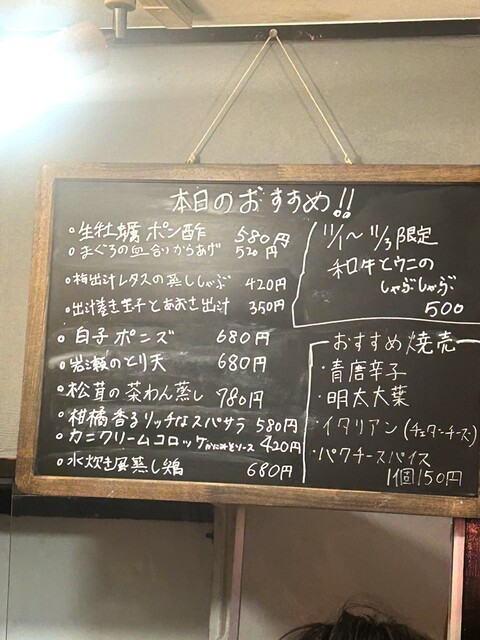 本日のおすすめ!!
○生牡蠣ポン酢 580円
○まぐろの血合りからあげ 520円
○梅出汁レタスの蒸ししゃぶ 420円
○出汁巻き玉子とあおさ出汁 350円
○白子ポニズ 680円
○岩瀬のとり天 680円
○松茸の茶わん蒸し 780円
○柑橘香るリッチなスパサラ 580円
○カニクリームコロッケ かにみそソース 420円
○水炊き風蒸し鶏 680円
11/1〜11/3限定
和牛とウニの
しゃぶしゃぶ
500
おすすめ焼売
・青唐辛子
・明太大葉
・イタリアン(チェダーチーズ)
・パクチースパイス
1個150円